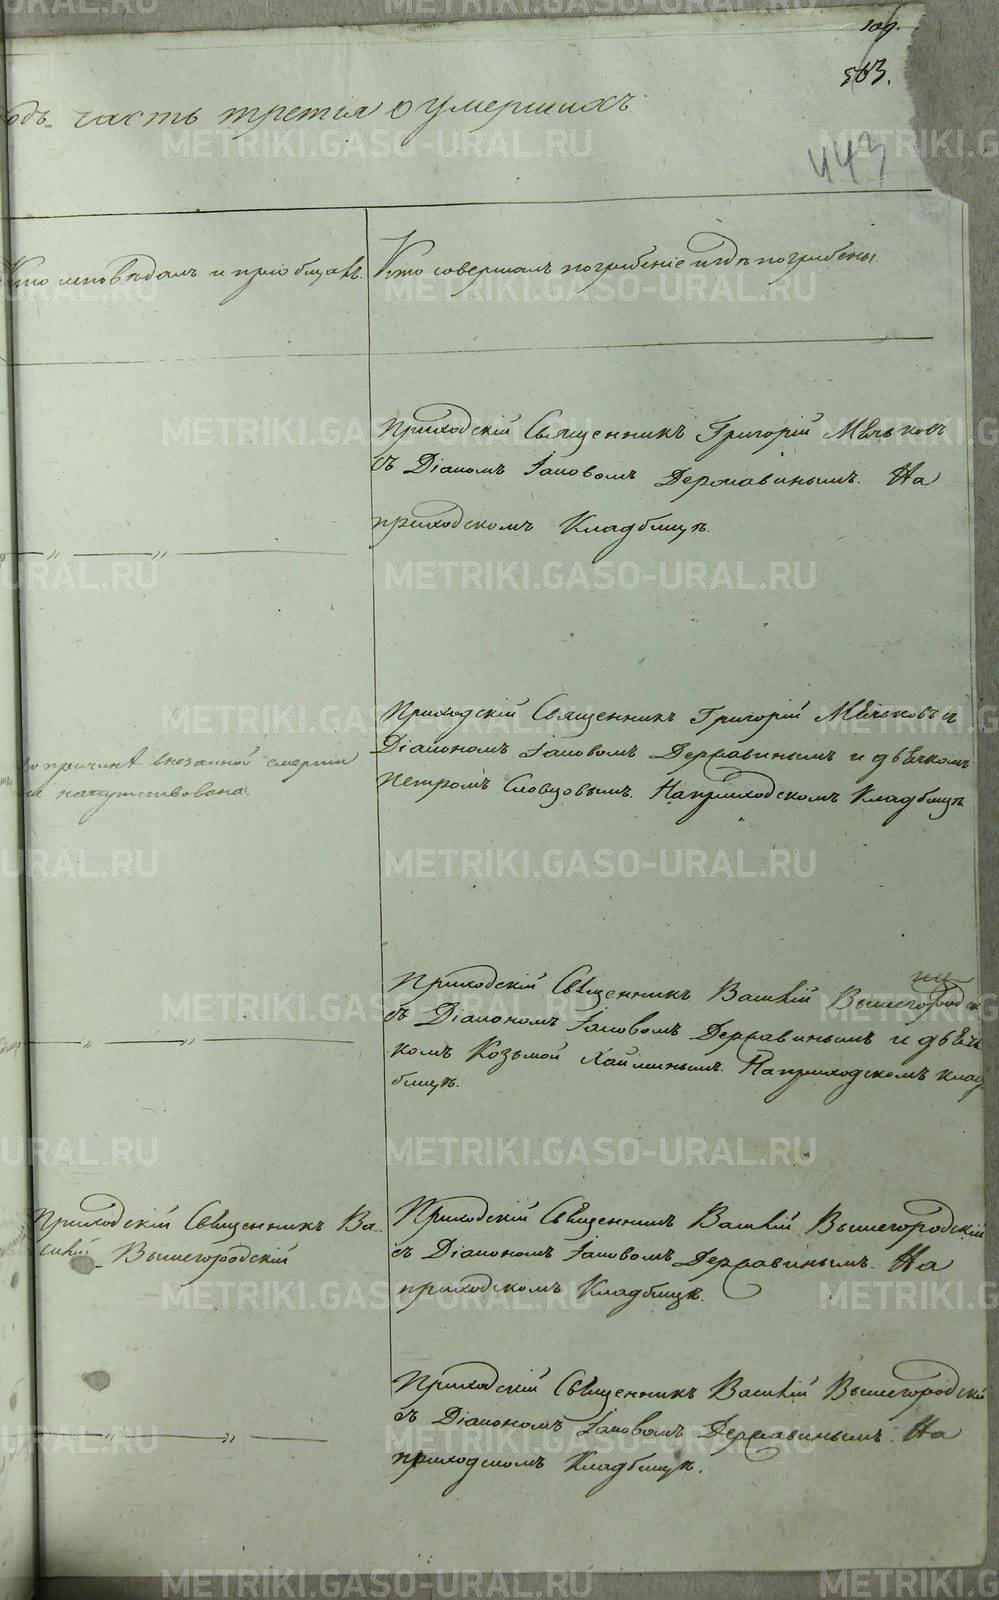 109.
563.
443
одъ часть третья о умершихъ
Кто исповѣдалъ и приобщалъ.
Кто совершалъ погребеніе и гдѣ погребены
Приходскій Священникъ Григорій Мѣчьковъ
съ Діакомъ Іаковомъ Державинымъ. На
приходскомъ Кладбищѣ.
— „ — „ —
Приходскій Священникъ Григорій Мѣчьковъ съ
Діакономъ Іаковомъ Державинымъ и дьѣчкомъ
Петромъ Словцовымъ. На приходскомъ Кладбищѣ
по причинѣ внезапной смерти
не напутствована.
Приходскій Свѣщенникъ Василій Вышегородскій
съ Діакономъ Іаковомъ Державинымъ и дьѣч
комъ Козьмой Хайминымъ. На приходскомъ клад
бищѣ.
— „ — „ —
Приходскій Свѣщенникъ Ва-
силій Вышегородскій
Приходскій Свѣщенникъ Василій Вышегородскій
съ Діакономъ Іаковомъ Державинымъ. На
приходскомъ Кладбищѣ.
Приходскій Свѣщенникъ Василій Вышегородскій
съ Діакономъ Іаковомъ Державинымъ. На
приходскомъ Кладбищѣ.
— „ — „ —
METRIKI.GASO-URAL.RU